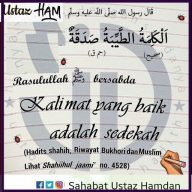 Ustaz HAM
قال رسول الله صلى الله عليه وسلم
اَلْكَلِمَةُ الطَّيِّبَةُ صَدَقَةٌ
Rasulullah ﷺ bersabda
Kalimat yang baik
adalah sedekah
(Hadits shahih, Riwayat Bukhori dan Muslim
Lihat Shahihul jaami' no. 4528)
Sahabat Ustaz Hamdan